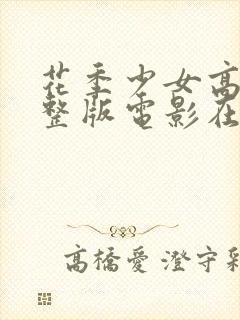 花季少女高
整版電影在
高橋愛 澄守彩